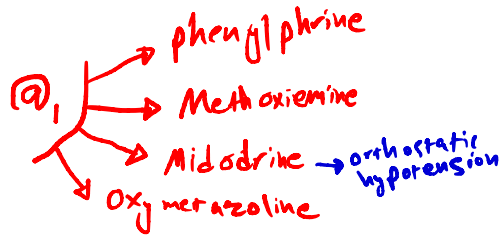 phenylphrine
@1
Methoxiemine
Midodrine → orthostatic
hypotension
Oxymetazoline